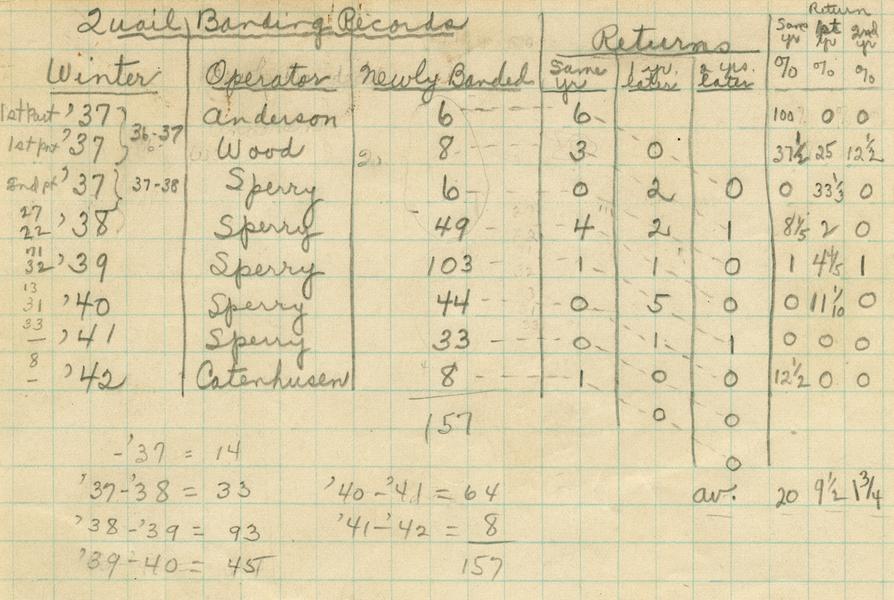 Quail Banding Records
Return
Returns
Same yr 1st yr 2nd yr
Winter Operator Newly Banded Same yr 1 yr. later 2 yrs. later % % %
1st Part '37 } 36-37 Anderson 6 6 100 0 0
1st prt '37 Wood 8 3 0 37½ 25 12½
2nd pt '37 } 37-38 Sperry 6 0 2 0 0 33⅓ 0
27 22 '38 Sperry 49 4 2 1 8⅕ 2 0
71 32 '39 Sperry 103 1 1 0 1 4⅘ 1
13 31 '40 Sperry 44 0 5 0 0 11 1/10 0
33 – '41 Sperry 33 0 1 1 0 0 0
8 – '42 Catenhusen 8 1 0 0 12½ 0 0
157 0 0
-'37 = 14 0
'37-'38 = 33 '40-'41 = 64 av. 20 9½ 1¾
'38-'39 = 93 '41-'42 = 8
'39-40 = 45 157